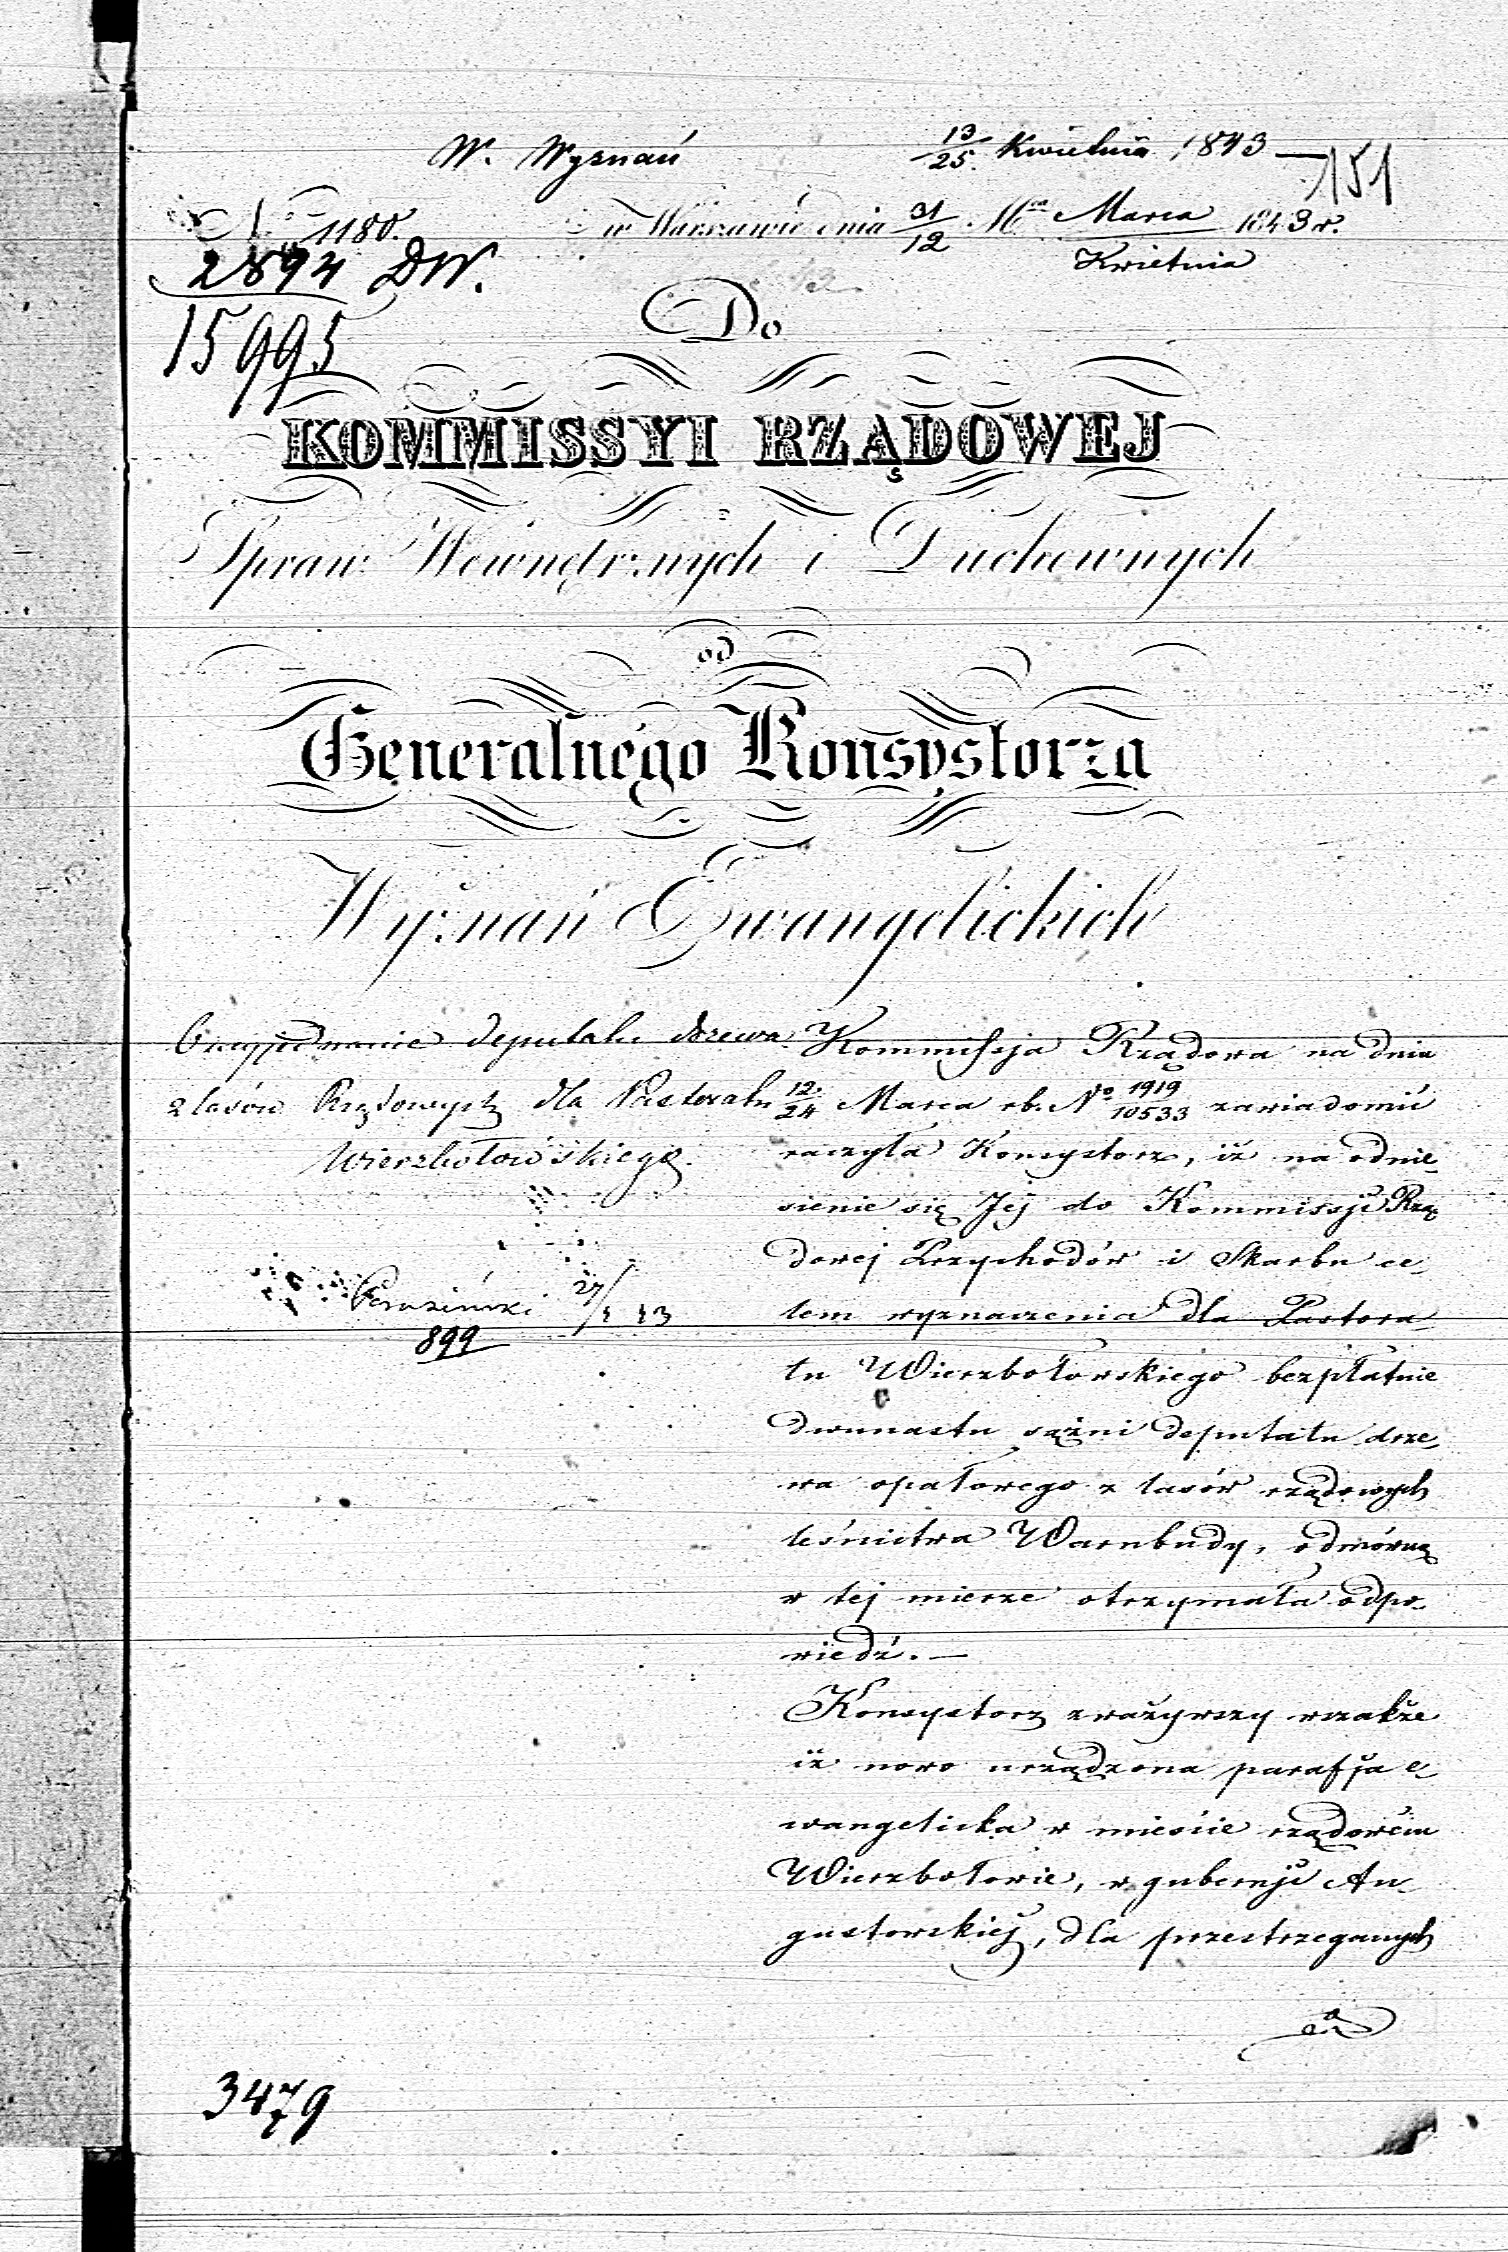 W. Wyznań
13/25 Kwietnia 1843
151
№ 1180.
w Warszawie dnia 31/12 Mca Marca/Kwietnia 1843 r.
2894 DW.
15995
Do
KOMMISSYI RZĄDOWEJ
Spraw Wewnętrznych i Duchownych
od
Generalnego Konsystorza
Wyznań Ewangelickich
deputatu drzewa
z lasów Rządowych dla Pastoratu
Wierzbołowskiego.
27/4 43
899
Kommissja Rządowa na dniu
12/24 Marca rb. № 1919/10533 zawiadomić
raczyła Konsystorz, iż na odnie-
sienie się Jej do Kommissji Rzą-
dowej Przychodów i Skarbu ce-
lem wyznaczenia dla Pastora-
tu Wierzbołowskiego bezpłatnie
dwunastu sążni deputatu drze-
wa opałowego z lasów rządowych
leśnictwa Warnbudy, odmówną
w tej mierze otrzymała odpo-
wiedź. —
Konsystorz zważywszy wszakże
iż nowo urządzona parafja e-
wangelicka w mieście rządowém
Wierzbołowie, w gubernji Au-
gustowskiej, dla przestrzeganych
3479